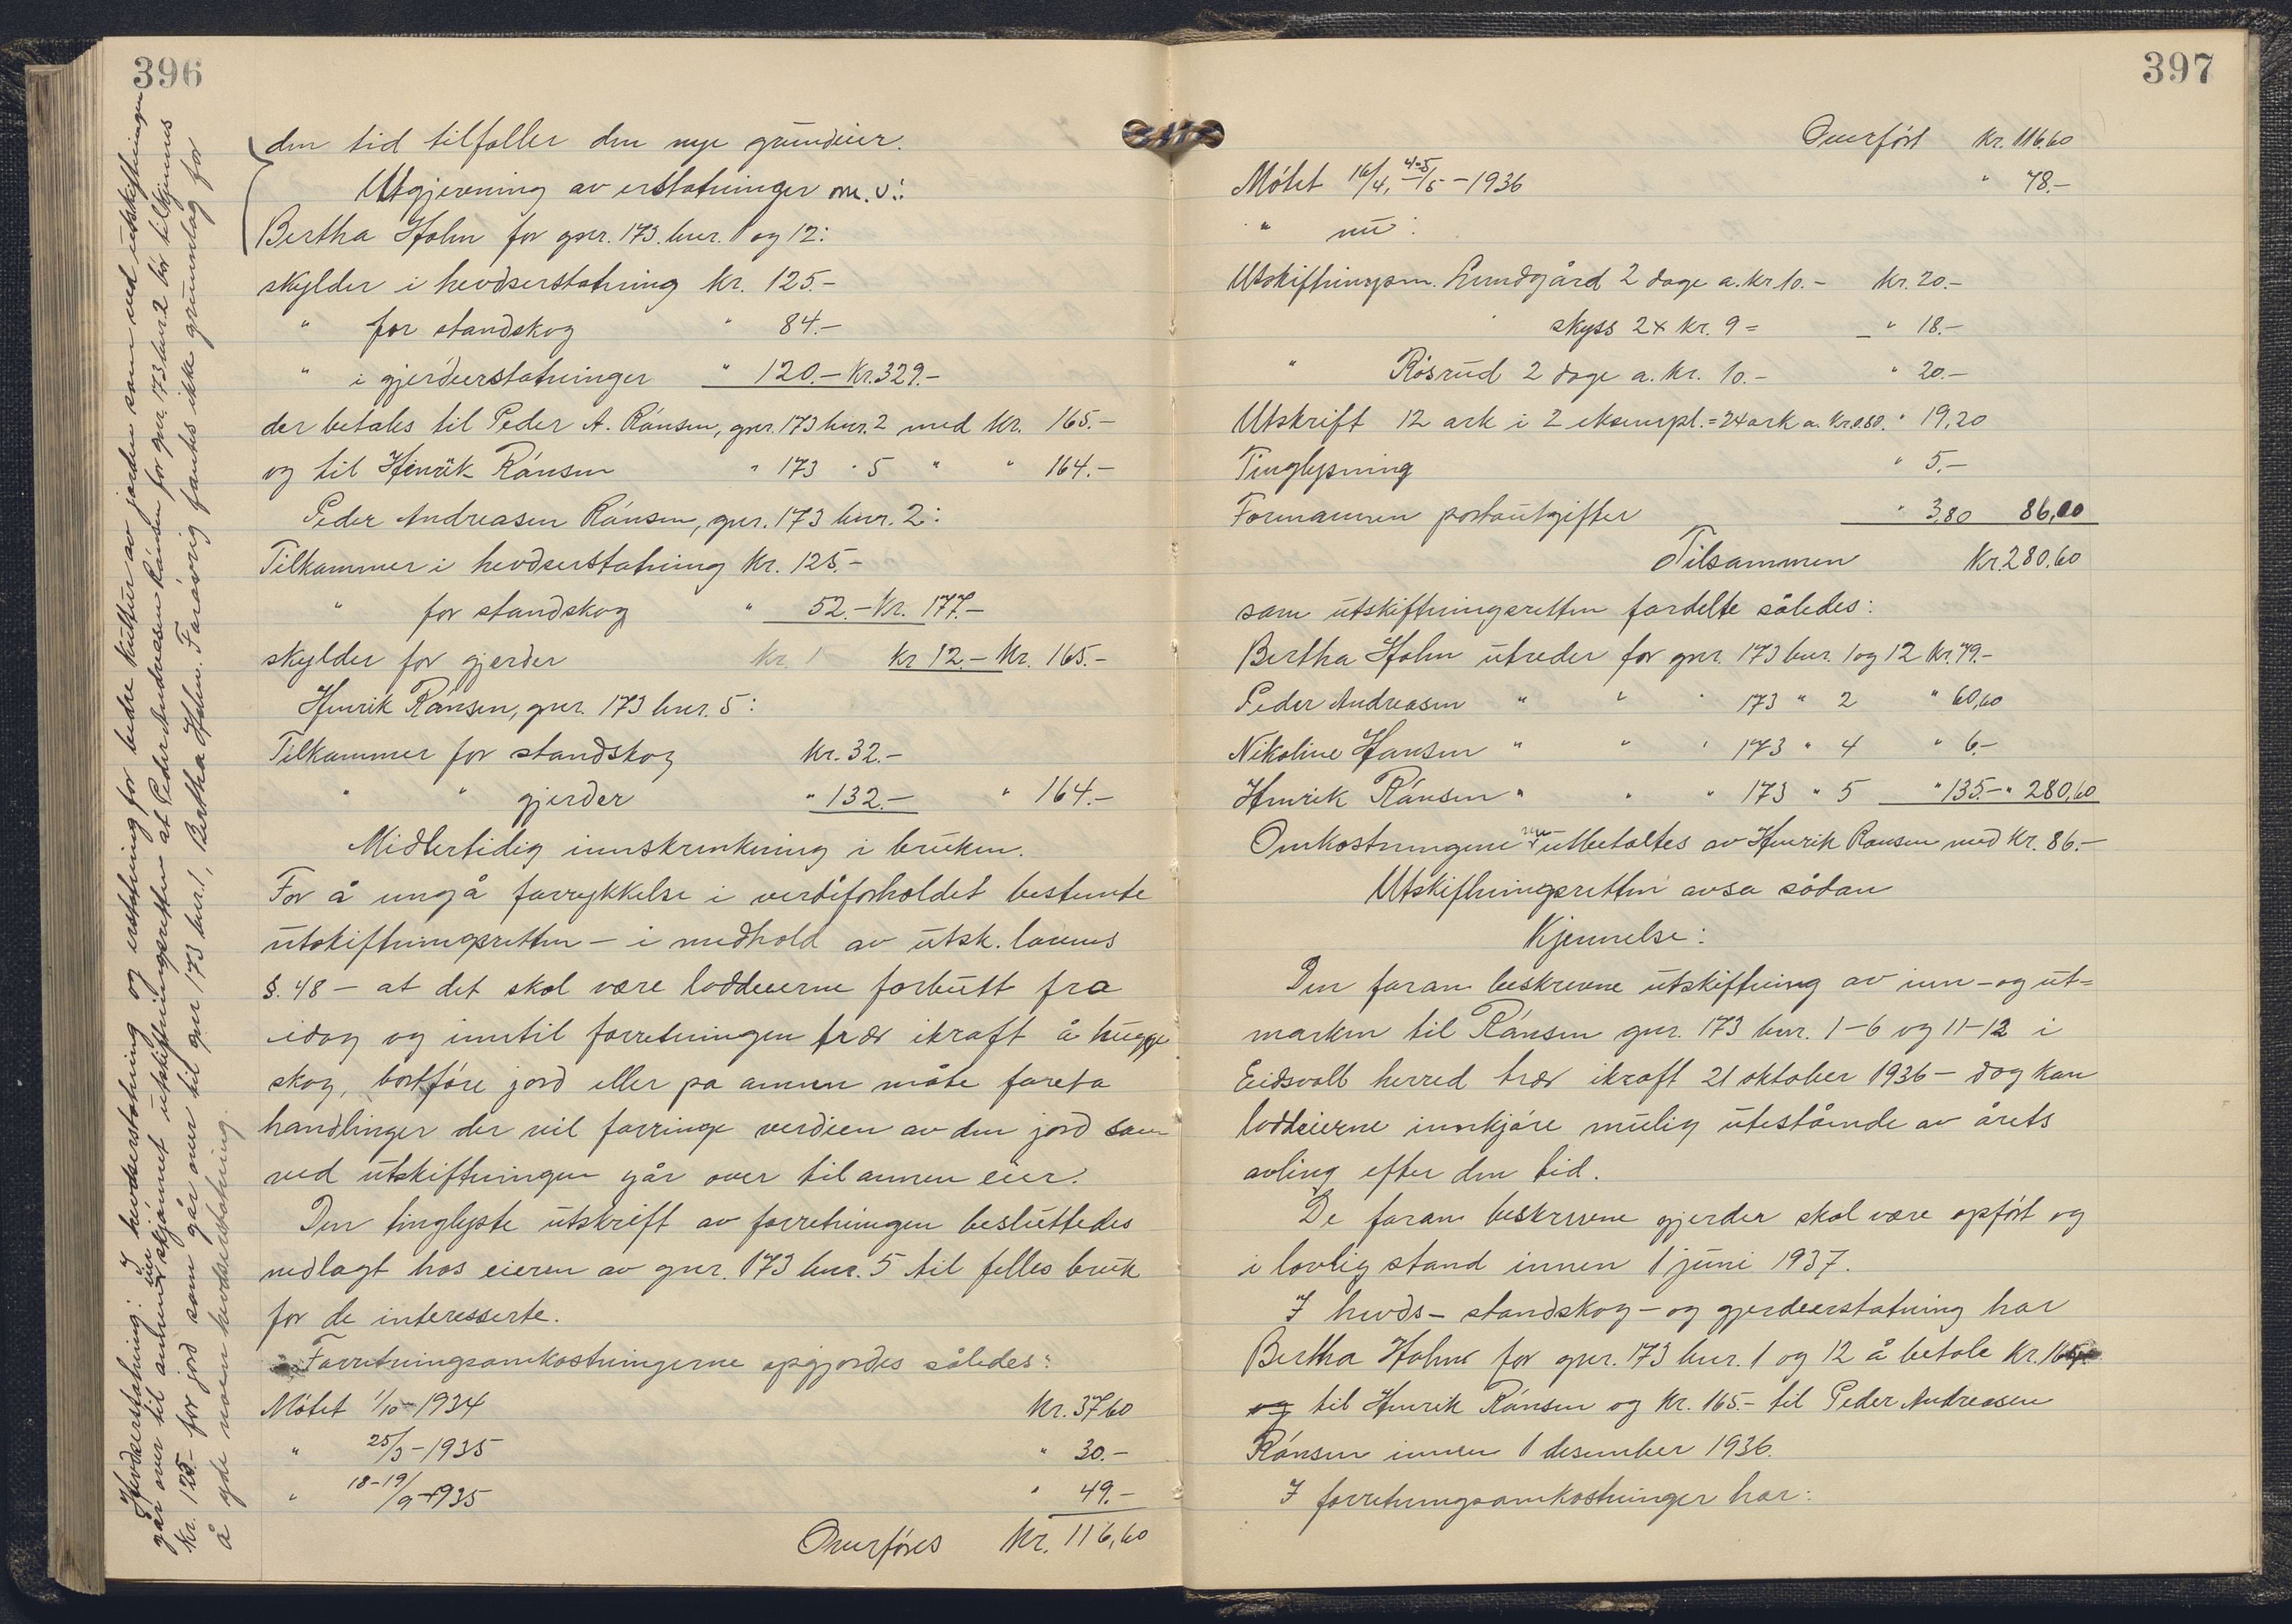 396
den tid tilfaller den nye grundeier.
Utgjevning av erstatninger m.v.:
Bertha Holm for gnr. 173 bnr. 1 og 12:
skylder i hevdserstatning Kr. 125.-
" for standskog " 84.-
" i gjerdeerstatninger " 120.- Kr. 329.-
der betales til Peder A. Rånsen, gnr. 173 bnr. 2 med Kr. 165.-
og til Henrik Rånsen " 173 " 5 " " 164.-
Peder Andreasen Rånsen, gnr. 173 bnr. 2:
Tilkommer i hevdserstatning Kr. 125.-
" for standskog " 52.- Kr. 177.-
skylder for gjerder Kr. 1 Kr 12.- Kr. 165.-
Henrik Rånsen, gnr. 173 bnr. 5:
Tilkommer for standskog Kr. 32.-
" " gjerder " 132.- " 164.-
Midlertidig innskrenkning i bruken.
For å ungå forrykkelse i verdiforholdet bestemte
utskiftningsretten - i medhold av utsk. lovens
§. 48 - at det skal være loddeierne forbutt fra
idag og inntil forretningen trær ikraft å hugge
skog, bortføre jord eller på annen måte foreta
handlinger der vil forringe verdien av den jord som
ved utskiftningen går over til annen eier.
Den tinglyste utskrift av forretningen besluttedes
nedlagt hos eieren av gnr. 173 bnr. 5 til felles bruk
for de interesserte.
Forretningsomkostningerne opgjordes således:
Møtet 1/10-1934 Kr. 37,60
" 25/3-1935 " 30.-
" 18-19/9-1935 " 49.-
Overføres Kr. 116,60
Hevdserstatning: I hevdserstatning og erstatning for bedre kultur av jorden som ved utskiftningen
går over til annen eier skjønnet utskiftningsretten at Peder Andreasen Rånsen for gnr. 173 bnr. 2 bør tilkjennes
Kr. 125.- for jord som går over til gnr 173 bnr. 1, Bertha Holm. Forøvrig fantes ikke grunnlag for
å yde noen hevdserstatning.
397
Overført Kr. 116,60
Møtet 16/4, 4-5/5-1936 " 78.-
" nu:
Utskiftningsm. Lundgård 2 dage a. Kr 10.- Kr. 20.-
skyss 2 x Kr. 9 = " 18.-
" Røsrud 2 dage a. Kr. 10.- " 20.-
Utskrift 12 ark i 2 eksempl. = 24 ark a. Kr 0.80. " 19,20
Tinglysning " 5.-
Formannen portoutgifter " 3,80 86,00
Tilsammen Kr. 280,60
som utskiftningsretten fordelte således:
Bertha Holm utreder for gnr. 173 bnr. 1 og 12 Kr. 79.-
Peder Andreasen " " " 173 " 2 " 60,60
Nikoline Hansen " " " 173 " 4 " 6.-
Henrik Rånsen " " " 173 " 5 " 135.- " 280,60
Omkostningene nu utbetaltes av Henrik Rånsen med Kr. 86.-
Utskiftningsretten avsa sådan
Kjennelse:
Den foran beskrevne utskiftning av inn- og ut-
marken til Rånsen gnr. 173 bnr. 1-6 og 11-12 i
Eidsvoll herred trær ikraft 21 oktober 1936 - dog kan
loddeierne innkjøre mulig utestående av årets
avling efter den tid.
De foran beskrevne gjerder skal være opført og
i lovlig stand innen 1 juni 1937.
I hevds- standskog- og gjerdeerstatning har
Bertha Holm for gnr. 173 bnr. 1 og 12 å betale Kr. 164.-
og til Henrik Rånsen og Kr. 165.- til Peder Andreasen
Rånsen innen 1 desember 1936.
I forretningsomkostninger har: